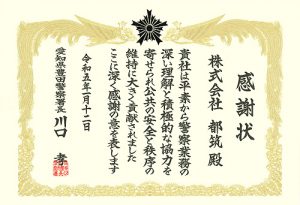 感謝状
株式会社 都筑 殿
貴社は平素から警察業務の
深い理解と積極的な協力を
寄せられ公共の安全と秩序の
維持に大きく貢献されました
ここに深く感謝の意を表します
令和五年一月十二日
愛知県豊田警察署長 川口 孝